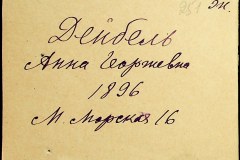 Эк.
Дейбель
Анна Георгиевна
1896
М. Морская 16